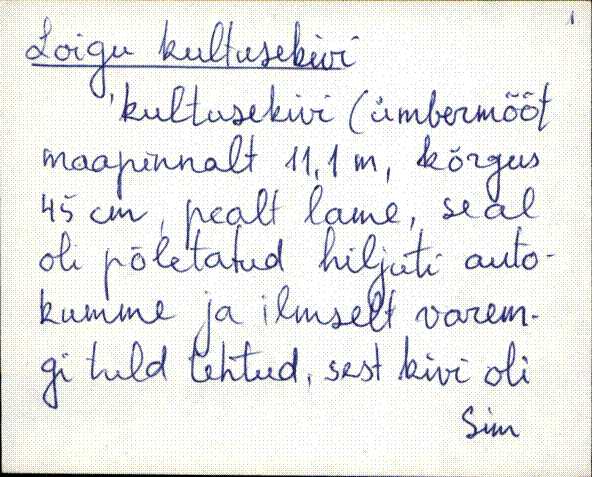 1
Loigu kultusekivi
'kultusekivi (ümbermõõt
maapinnalt 11,1 m, kõrgus
45 cm, pealt lame, seal
oli põletatud hiljuti auto-
kumme ja ilmselt varem-
gi tuld tehtud, sest kivi oli
Sim